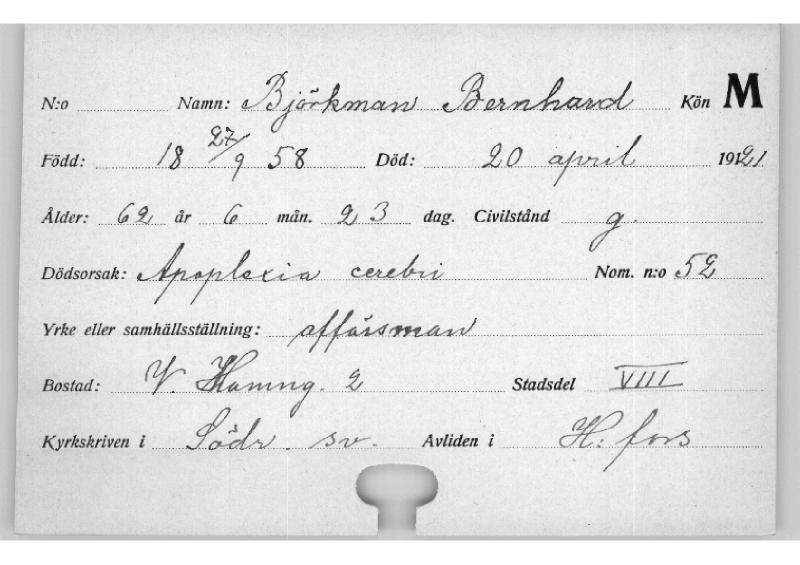 N:o Namn: Björkman Bernhard Kön M
Född: 18 27/9 58 Död: 20 april 1921
Ålder: 62 år 6 mån. 23 dag. Civilstånd g.
Dödsorsak: Apoplexia cerebri Nom. n:o 52
Yrke eller samhällsställning: affärsman
Bostad: V. Hamng. 2 Stadsdel VIII
Kyrkskriven i Södr. sv. Avliden i H:fors